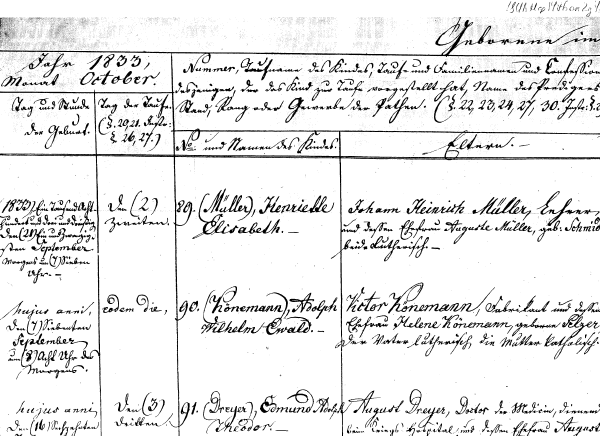 Geborene im
Jahr 1833,
Monat October.
Nummer, Taufname des Kindes, Taufe und Familiennamen und Confession
desjenigen, der das Kind zur Taufe vorgestellt hat, Name des Predigers
Stand, Rang oder Gewerbe der Pathen. (§. 22, 23, 24, 27, 30. Instr:
Tag und Stunde
der Geburt.
Tag der Taufe.
(§. 29, 21. Instr:
§. 26, 27.)
No: und Namen des Kindes.
Eltern. —
1833) Ein Tausend Acht
hundert und drei und dreißig
den (21) Ein und Zwanzig
sten September
Morgens um (7) Sieben
Uhr. —
Den (2)
zweiten.
89. (Müller), Henriette
Elisabeth. —
Johann Heinrich Müller, Lehrer
und dessen Ehefrau Auguste Müller, geb: Schmid
beide Lutherisch. —
hujus anni,
den (7) Siebenten
September
um (8) Acht Uhr des
Morgens.
eodem die,
90. (Könemann), Adolph
Wilhelm Ewald. —
Victor Könemann, Fabrikant und dessen
Ehefrau Helene Könemann, geborene Pelzer
Der Vater lutherisch, die Mutter katholisch.
hujus anni,
den (16) Sechzehnten
Den (3)
dritten.
91. (Dreyer), Edmund Adolph
Theodor. —
August Dreyer, Doctor der Medicin, dienend
beim Kriegs Hospital, und dessen Ehefrau August